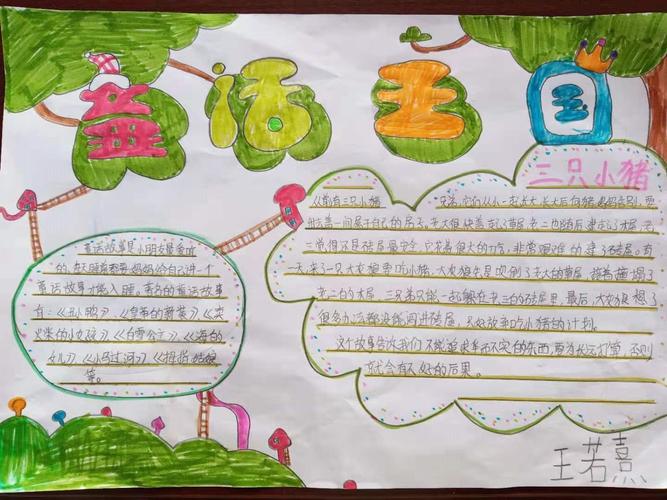 童话王国
童话故事是小朋友最喜欢
的,每天睡前都要妈妈给自己讲一个
童话故事才能入睡。著名的童话故事
有:《丑小鸭》、《皇帝的新装》、《卖
火柴的小女孩》、《白雪公主》、《海的
女儿》、《小马过河》、《拇指姑娘》
等。
三只小猪
从前有三只小猪
兄弟,它们从小一起长大,长大后向猪妈妈告别,要
他去盖一间属于自己的房子。老大很快盖起了草屋,老二也随后建起了木屋,老
三觉得还是砖屋最安全,它花费很大的工夫,非常艰难的建了砖屋。有
一天,来了一只大灰狼要吃小猪,大灰狼先是吹倒了老大的草屋,接着撞塌了
老二的木屋,三兄弟只能一起躲在老三的砖屋里,最后,大灰狼想了
很多办法都没能闯进砖屋,只好放弃吃小猪的计划。
这个故事告诉我们,不能追求华而不实的东西,要为长远打算,否则
就会有不好的后果。
王若熹